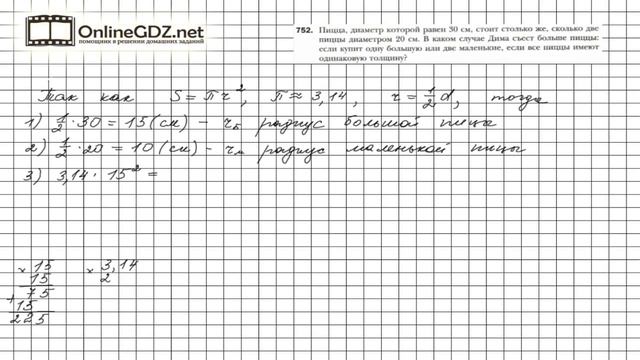 OnlineGDZ.net
помощник в решении домашних заданий
752. Пицца, диаметр которой равен 30 см, стоит столько же, сколько две
пиццы диаметром 20 см. В каком случае Дима съест больше пиццы:
если купит одну большую или две маленькие, если все пиццы имеют
одинаковую толщину?
Так как S = πr², π ≈ 3,14, r = 1/2 d, тогда
1) 1/2 · 30 = 15 (см) – rб радиус большой пица
2) 1/2 · 20 = 10 (см) – rм радиус маленькой пицы
3) 3,14 · 15² =
× 15
15
75
+ 15
225
× 3,14
2